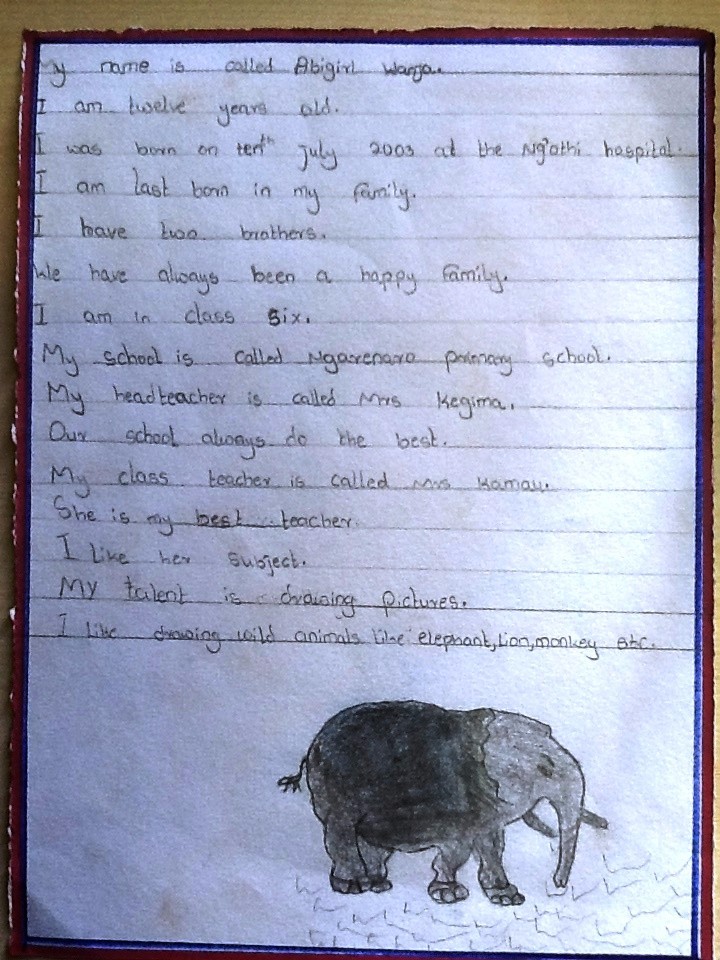 My name is called Abigirl Wanja.
I am twelve years old.
I was born on tenth July 2003 at the Ng'athi hospital.
I am last born in my family.
I have two brothers.
We have always been a happy family.
I am in class six.
My school is called Ngarenaro primary school.
My headteacher is called Mrs Kegima.
Our school always do the best.
My class teacher is called Mrs Kamau.
She is my best teacher.
I like her subject.
My talent is drawing pictures.
I like drawing wild animals like elephant, Lion, monkey etc.